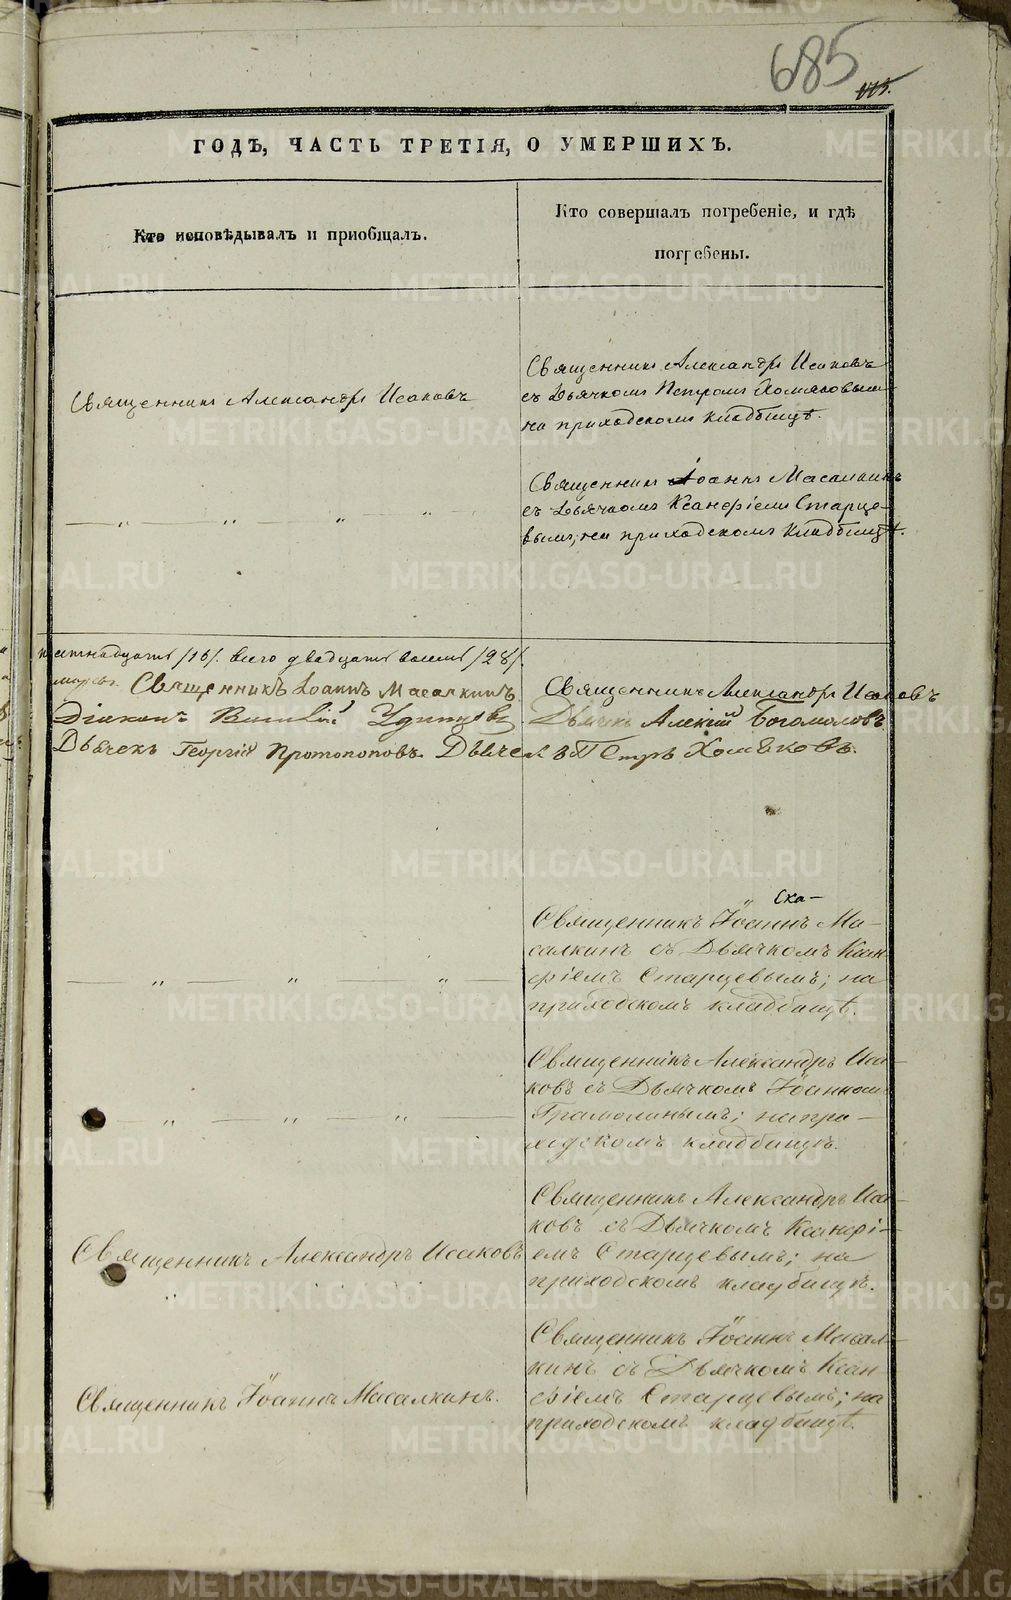 685
ГОДЪ, ЧАСТЬ ТРЕТІЯ, О УМЕРШИХЪ.
Кто исповѣдывалъ и пріобщалъ.
Кто совершалъ погребеніе, и гдѣ
погребены.
Священникъ Александръ Исаковъ
Священникъ Александръ Исаковъ
съ Дьячкомъ Петромъ Хомяковымъ
на приходскомъ кладбищѣ.
Священникъ Іоаннъ Масалкинъ
съ Дьячкомъ Ксанфіемъ Старце-
вымъ; на приходскомъ кладбищѣ.
всего двадцать восемь /28/.
Священникъ Іоаннъ Масалкинъ
Священникъ Александръ Исаковъ
Діаконъ Василій
Дьячекъ Алексій Богомоловъ
Дьячекъ Георгій Протопоповъ. Дьячекъ Петръ Хомяковъ.
Ска-
Священникъ Іоаннъ Ма-
салкинъ съ Дьячкомъ Ксан-
фіемъ Старцевымъ; на
приходскомъ кладбищѣ.
Священникъ Александръ Иса-
ковъ съ Дьячкомъ Іоанномъ
на при-
ходскомъ кладбищѣ.
Священникъ Александръ Исаковъ
Священникъ Александръ Иса-
ковъ съ Дьячкомъ Ксанфі-
емъ Старцевымъ; на
приходскомъ кладбищѣ.
Священникъ Іоаннъ Масалкинъ.
Священникъ Іоаннъ Масал-
кинъ съ Дьячкомъ Ксан-
фіемъ Старцевымъ; на
приходскомъ кладбищѣ.
METRIKI.GASO-URAL.RU